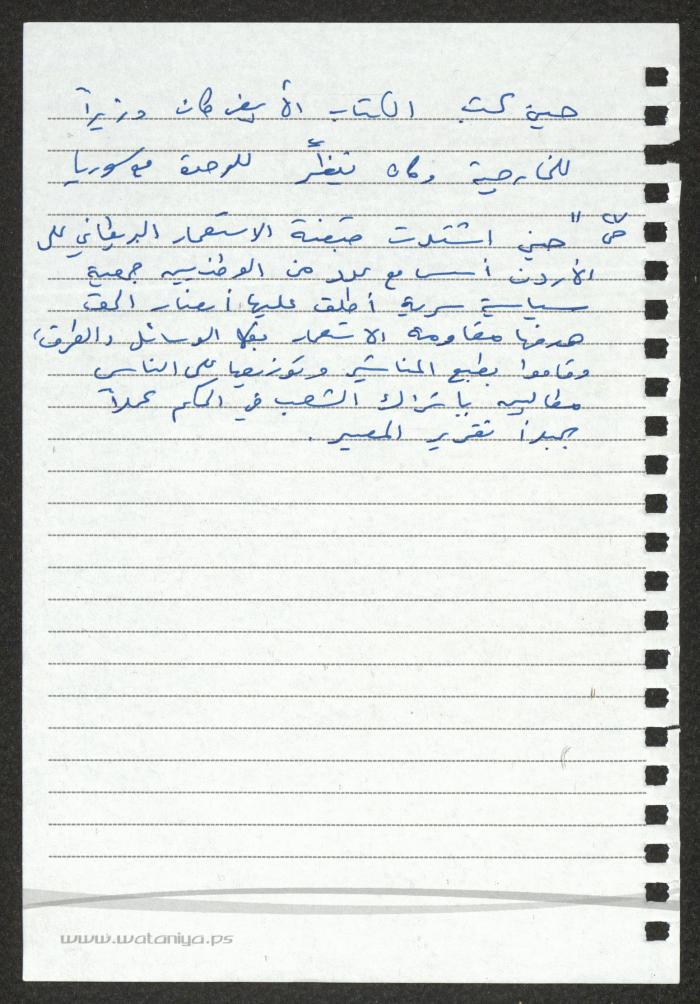 حين كتب الكتاب الأبيض كان وزيراً
للخارجية وكان ينظّر للوحدة مع سوريا
ص٧ " حين اشتدت قبضة الاستعمار البريطاني على
الأردن أسس مع عدد من الوطنيين جمعية
سياسية سرية أطلق عليها أنصار الحق
هدفها مقاومة الاستعمار بكل الوسائل والطرق،
وقاموا بطبع المناشير وتوزيعها على الناس
مطالبين باشتراك الشعب في الحكم عملاً
بمبدأ تقرير المصير .
www.wataniya.ps